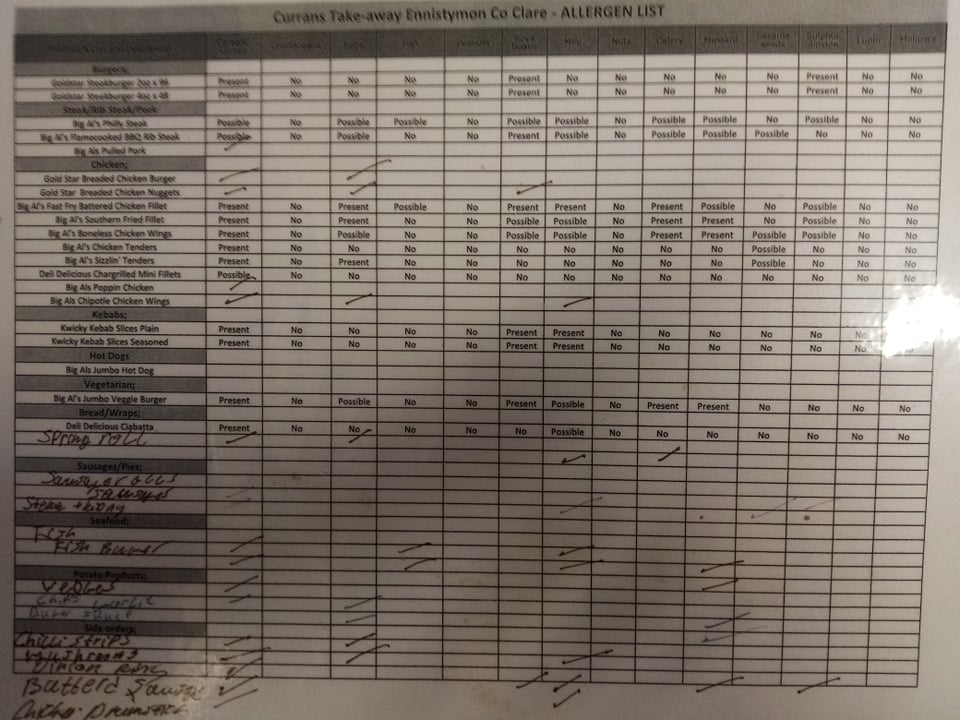 Currans Take-away Ennistymon Co Clare - ALLERGEN LIST
Crustaceans Eggs Fish Peanuts Soya Beans Milk Nuts Celery Mustard Sesame seeds Sulphur dioxide Lupin Molluscs
Burgers;
Goldstar Steakburger 2oz x 96 Present No No No No Present No No No No No Present No No
Goldstar Steakburger 4oz x 48 Present No No No No Present No No No No No Present No No
Steak/Rib Steak/Pork
Big Al's Philly Steak Possible No Possible Possible No Possible Possible No Possible Possible No Possible No No
Big Al's Flamecooked BBQ Rib Steak Possible No Possible No No Present Possible No Possible Possible Possible No No No
Big Als Pulled Pork
Chicken;
Gold Star Breaded Chicken Burger
Gold Star Breaded Chicken Nuggets
Big Al's Fast Fry Battered Chicken Fillet Present No Present Possible No Present Present No Present Possible No Possible No No
Big Al's Southern Fried Fillet Present No Present No No Possible Possible No Present Present No Possible No No
Big Al's Boneless Chicken Wings Present No Possible No No Possible Possible No Present Present Possible Possible No No
Big Al's Chicken Tenders Present No No No No No No No No No Possible No No No
Big Al's Sizzlin' Tenders Present No Present No No No No No No No Possible No No No
Deli Delicious Chargrilled Mini Fillets Possible No No No No No No No No No No No No No
Big Als Poppin Chicken
Big Als Chipotle Chicken Wings
Kebabs;
Kwicky Kebab Slices Plain Present No No No No Present Present No No No No No No No
Kwicky Kebab Slices Seasoned Present No No No No Present Present No No No No No No No
Hot Dogs
Big Als Jumbo Hot Dog
Vegetarian;
Big Al's Jumbo Veggie Burger Present No Possible No No Present Possible No Present Present No No No No
Bread/Wraps;
Deli Delicious Ciabatta Present No No No No No Possible No No No No No No No
Spring roll
Sausages/Pies;
Sausages
Seafood;
Fish
Fish Burner
Potato Products;
Chips
Side orders;
Chilli strips
Mushrooms
Onion
Butterd